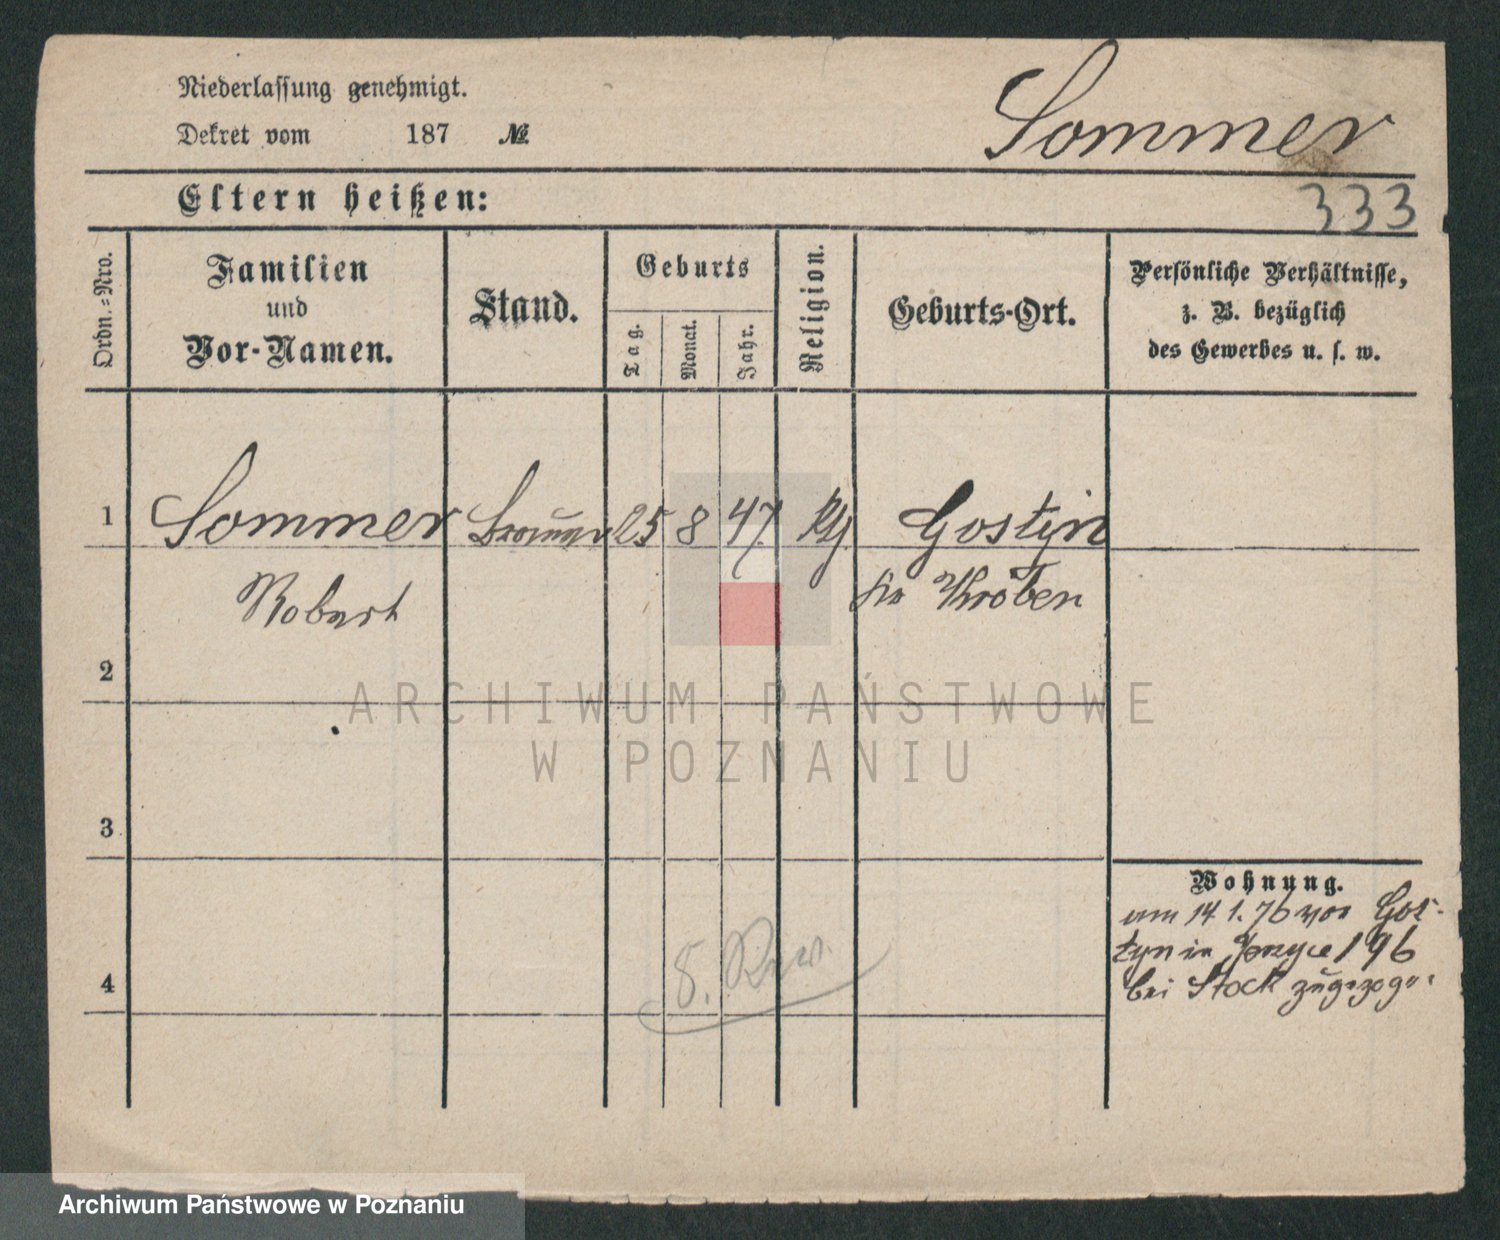 Niederlassung genehmigt.
Dekret vom 187 №
Sommer
Eltern heißen:
333
Ordn.-Nro.
Familien
und
Vor-Namen.
Stand.
Geburts
Tag.
Monat.
Jahr.
Religion.
Geburts-Ort.
Persönliche Verhältnisse,
z. B. bezüglich
des Gewerbes u. s. w.
1 Sommer Brauer 25 8 47 Gostyn
Robert Kr Kröben
2
3
4
Wohnung.
am 14 1. 76 von Gos-
tyn in 196
bei Stock zugezogen
ARCHIWUM PAŃSTWOWE
W POZNANIU
Archiwum Państwowe w Poznaniu